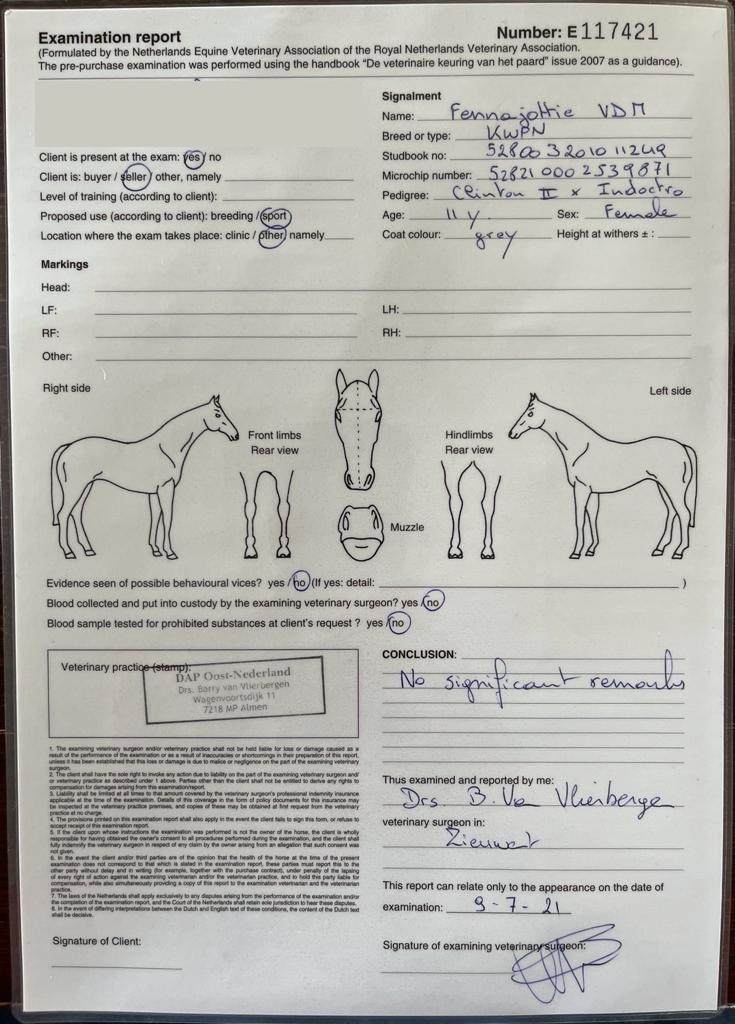 Examination report
Number: E 117421
(Formulated by the Netherlands Equine Veterinary Association of the Royal Netherlands Veterinary Association.
The pre-purchase examination was performed using the handbook “De veterinaire keuring van het paard” issue 2007 as a guidance).
Client is present at the exam: yes / no
Client is: buyer / seller / other, namely
Level of training (according to client):
Proposed use (according to client): breeding / sport
Location where the exam takes place: clinic / other, namely
Signalment
Name: Fennajottie VDM
Breed or type: KWPN
Studbook no: 528003201011249
Microchip number: 528210002539871
Pedigree: Clinton II x Indoctro
Age: 11 y Sex: Female
Coat colour: grey Height at withers ± :
Markings
Head:
LF: LH:
RF: RH:
Other:
Right side
Left side
Front limbs
Rear view
Hindlimbs
Rear view
Muzzle
Evidence seen of possible behavioural vices? yes / no (If yes: detail: )
Blood collected and put into custody by the examining veterinary surgeon? yes / no
Blood sample tested for prohibited substances at client's request ? yes / no
Veterinary practice (stamp):
DAP Oost-Nederland
Drs. Barry van Vlierbergen
Wagenvoortsdijk 11
7218 MP Almen
1. The examining veterinary surgeon and/or veterinary practice shall not be held liable for loss or damage caused as a
result of the performance of the examination or as a result of inaccuracies or shortcomings in their preparation of this report,
unless it has been established that this loss or damage is due to malice or negligence on the part of the examining veterinary
surgeon.
2. The client shall have the sole right to invoke any action due to liability on the part of the examining veterinary surgeon and/
or veterinary practice as described under 1 above. Parties other than the client shall not be entitled to derive any rights to
compensation for damages arising from this examination/report.
3. Liability shall be limited at all times to that amount covered by the veterinary surgeon's professional indemnity insurance
applicable at the time of the examination. Details of this coverage in the form of policy documents for this insurance may
be inspected at the veterinary practice premises, and copies of these may be obtained at first request from the veterinary
practice at no charge.
4. The provisions printed on this examination report shall also apply in the event the client fails to sign this form, or refuse to
accept receipt of this examination report.
5. If the client upon whose instructions the examination was performed is not the owner of the horse, the client is wholly
responsible for having obtained the owner's consent to all procedures performed during the examination, and the client shall
fully indemnify the veterinary surgeon in respect of any claim by the owner arising from an allegation that such consent was
not given.
6. In the event the client and/or third parties are of the opinion that the health of the horse at the time of the present
examination does not correspond to that which is stated in the examination report, these parties must report this to the
other party without delay and in writing (for example, together with the purchase contract), under penalty of the lapsing
of every right of action against the examining veterinarian and/or the veterinary practice, and to hold this party liable for
compensation, while also simultaneously providing a copy of this report to the examination veterinary and the veterinary
practice.
7. The laws of the Netherlands shall apply exclusively to any disputes arising from the performance of the examination and/or
the completion of the examination report, and the Court of the Netherlands shall retain sole jurisdiction to hear these disputes.
8. In the event of differing interpretations between the Dutch and English text of these conditions, the content of the Dutch text
shall be decisive.
Signature of Client:
CONCLUSION:
No significant remarks
Thus examined and reported by me:
Drs. B. Va Vlierberge
veterinary surgeon in:
This report can relate only to the appearance on the date of
examination: 9-7-21
Signature of examining veterinary surgeon: